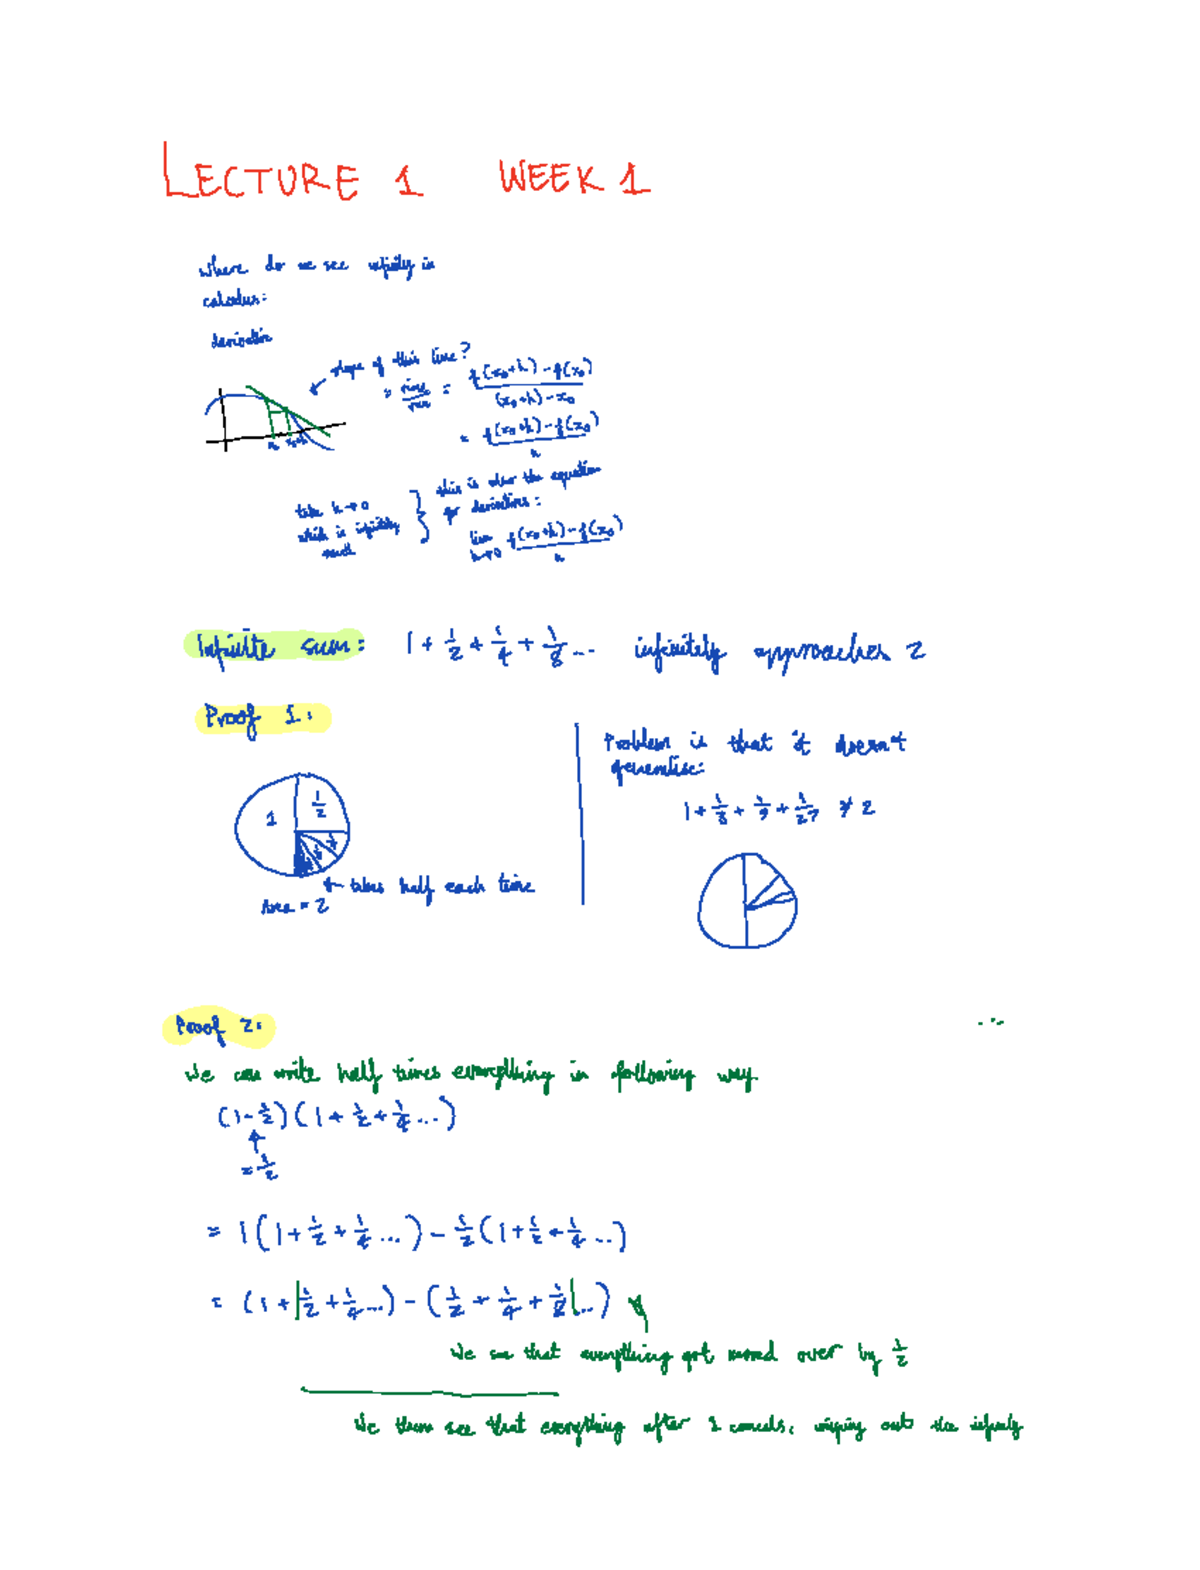 LECTURE 1 WEEK 1
where do we see infinity in
calculus:
derivative
slope of this line?
= rise/run = f(x₀+h) - f(x₀) / (x₀+h) - x₀
= f(x₀+h) - f(x₀) / h
x₀ x₀+h
take h→0
which is infinitely
small
this is where the equation
for derivatives:
lim h→0 f(x₀+h) - f(x₀) / h
Infinite sum: 1 + 1/2 + 1/4 + 1/8 ... infinitely approaches 2
Proof 1:
1 1/2
takes half each time
Area = 2
Problem is that it doesn't
generalise:
1 + 1/3 + 1/9 + 1/27 ≠ 2
Proof 2:
We can write half times everything in following way
(1 - 1/2)(1 + 1/2 + 1/4 ...)
= 1/2
= 1(1 + 1/2 + 1/4 ...) - 1/2(1 + 1/2 + 1/4 ...)
= (1 + 1/2 + 1/4 ...) - (1/2 + 1/4 + 1/8 ...)
We see that everything got moved over by 1/2
We then see that everything after 1 cancels, wiping out the infinity